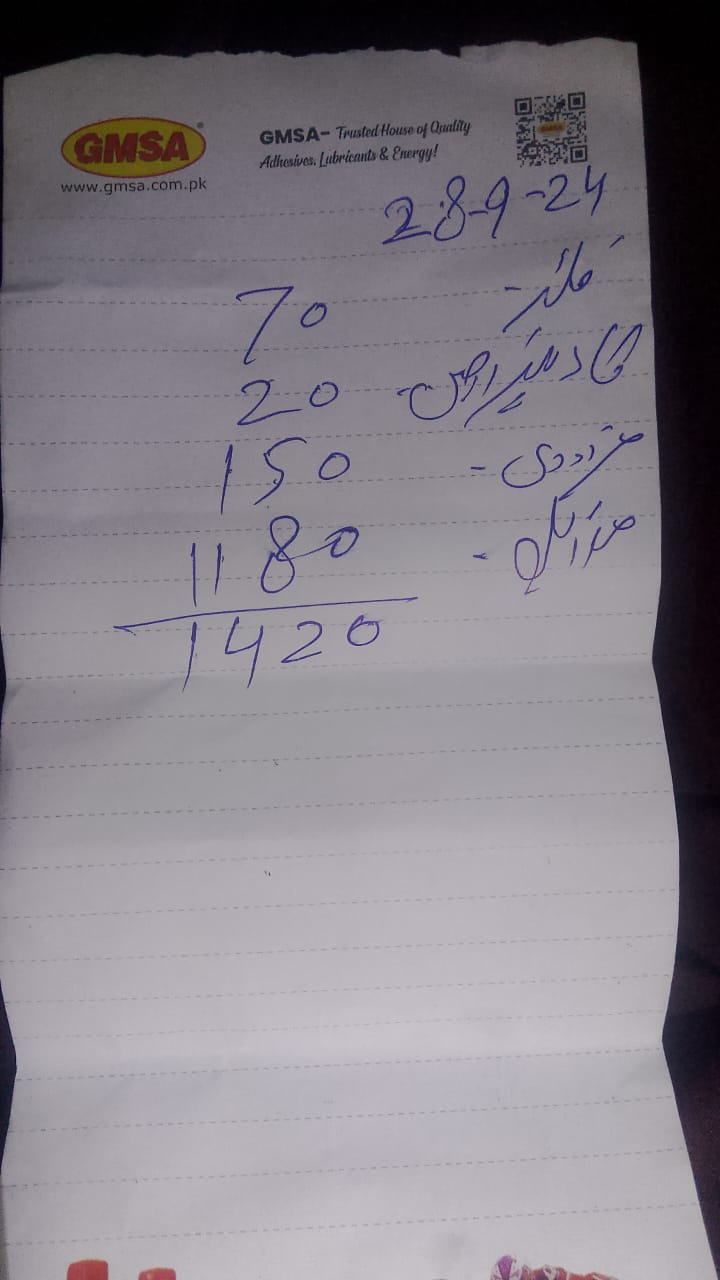 GMSA
www.gmsa.com.pk
GMSA- Trusted House of Quality
Adhesives, Lubricants & Energy!
28-9-24
فلٹر - 70
20
مزدوری - 150
1180
1420